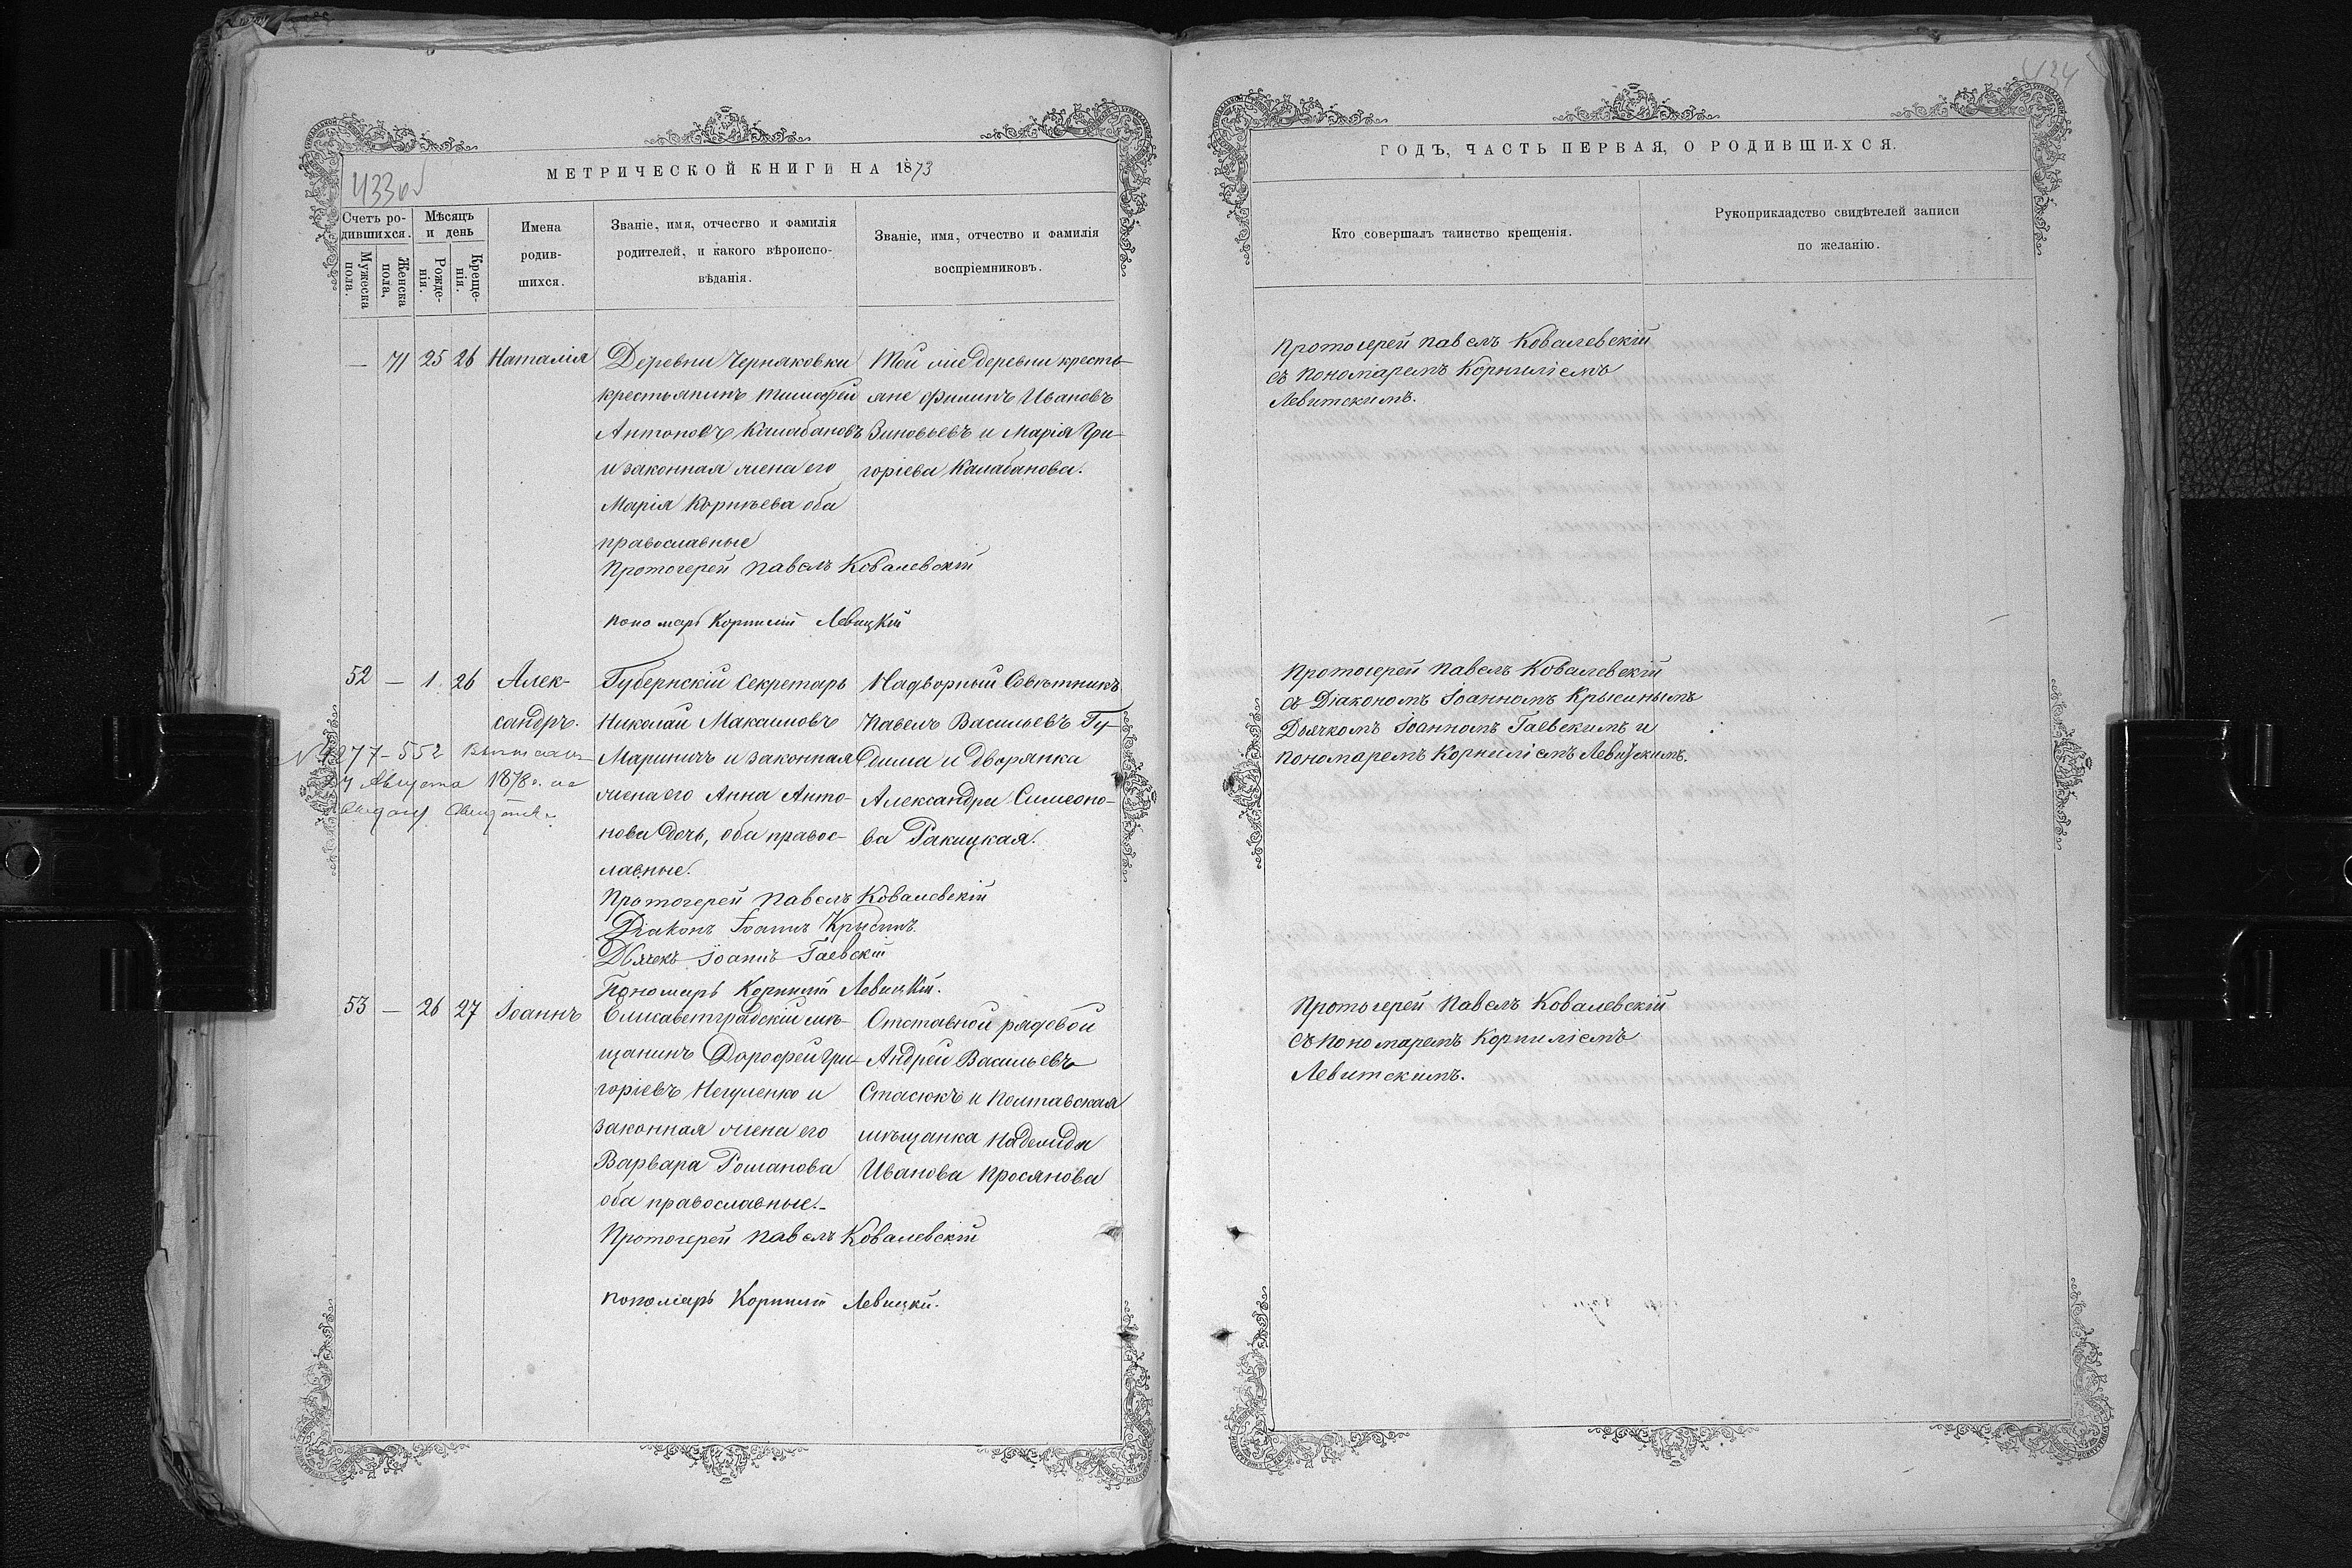 433об
МЕТРИЧЕСКОЙ КНИГИ НА 1873
Счетъ ро-
дившихся.
Мужеска
пола.
Женска
пола.
Мѣсяцъ
и день
Рожде-
нія.
Креще-
нія.
Имена
родив-
шихся.
Званіе, имя, отчество и фамилія
родителей, и какого вѣроиспо-
вѣданія.
Званіе, имя, отчество и фамилія
воспріемниковъ.
— 71 25 26 Наталія
Деревни Черняковки
крестьянинъ Тимофей
Антоновъ Калабановъ
и законная жена его
Марія Корнѣева оба
православные
Той же деревни кресть-
яне Филипъ Ивановъ
Зиновьевъ и Марія Гри-
горіева Калабанова.
Протоіерей Павелъ Ковалевскій
пономарь Корнилій Левицкій
52 — 1 26 Алек-
сандръ.
№ 1277-552
Августа 1878 г.
Губернскій Секретарь
Николай Максимовъ
Мариничъ и законная
жена его Анна Анто-
нова дочь, оба правос-
лавные.
Надворный Совѣтникъ
Павелъ Васильевъ Гу-
Дворянка
Александра Симеоно-
ва Ракицкая.
Протоіерей Павелъ Ковалевскій
Діаконъ Іоаннъ Крысинъ
Дьячекъ Іоаннъ Гаевскій
Пономарь Корнилій Левицкій.
53 — 26 27 Іоаннъ
Елисаветградскій мѣ-
щанинъ Дорофей Гри-
горіевъ Негуленко и
законная жена его
Варвара Романова
оба православные.-
Отставной рядовой
Андрей Васильевъ
Стасюкъ и Полтавская
мѣщанка
Иванова Просянова
Протоіерей Павелъ Ковалевскій
пономарь Корнилій Левицкій.
434
ГОДЪ, ЧАСТЬ ПЕРВАЯ, О РОДИВШИХСЯ.
Кто совершалъ таинство крещенія.
Рукоприкладство свидѣтелей записи
по желанію.
Протоіерей Павелъ Ковалевскій
съ Пономаремъ Корниліемъ
Левитскимъ.
Протоіерей Павелъ Ковалевскій
съ Діакономъ Іоанномъ Крысинымъ
Дьячкомъ Іоанномъ Гаевскимъ и
пономаремъ Корниліемъ Левицкимъ.
Протоіерей Павелъ Ковалевскій
съ Пономаремъ Корниліемъ
Левитскимъ.